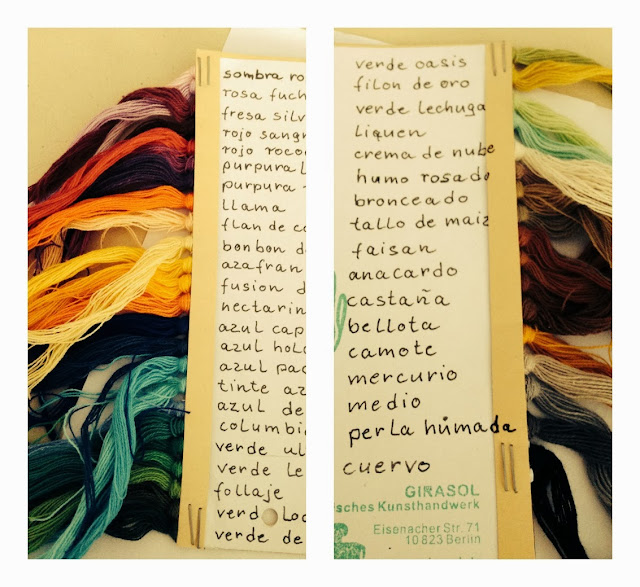 sombra ro
rosa fuch
fresa silv
rojo sangr
rojo rococ
purpura l
purpura
llama
flan de co
bonbon de
azafran
fusion d
nectarin
azul cap
azul hola
azul pac
tinte az
azul de
columbi
verde ul
verde le
follaje
verd loc
verde de
verde oasis
filon de oro
verde lechuga
liquen
crema de nube
humo rosado
bronceado
tallo de maiz
faisan
anacardo
castaña
bellota
camote
mercurio
medio
perla húmada
cuervo
GIRASOL
isches Kunsthandwerk
Eisenacher Str. 71
10823 Berlin